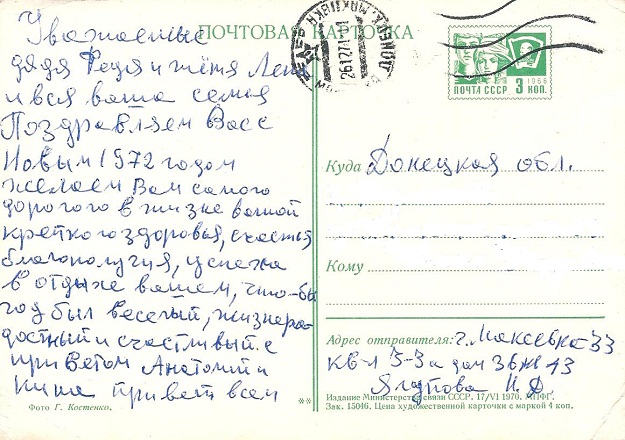 ПОЧТОВАЯ КАРТОЧКА
Уважаемые
дядя Федя и тётя Лена
и вся ваша семья
Поздравляем Вас с
Новым 1972 годом
желаем Вам самого
дорогого в жизне вашой
крепкого здоровья, счастья
благополучия, успеха
в отдыхе вашем, что-бы
год был веселый, жизнера-
достный и счастливый. с
приветом Анатолий и
Нина привет всем
Фото Г. Костенко.
**
1966
ПОЧТА СССР 3 КОП.
26127
Куда Донецкая обл.
Кому
Адрес отправителя: г. Макеевка 33
кв-л 3-3а дом
Издание Министерства связи СССР. 17/VI 1970. МПФГ.
Зак. 15046. Цена художественной карточки с маркой 4 коп.